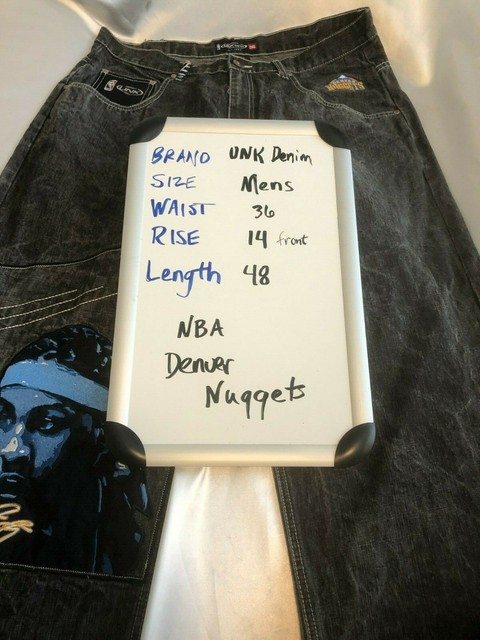 UNK
NUGGETS
BRAND UNK Denim
SIZE Mens
WAIST 36
RISE 14 front
Length 48
NBA
Denver
Nuggets